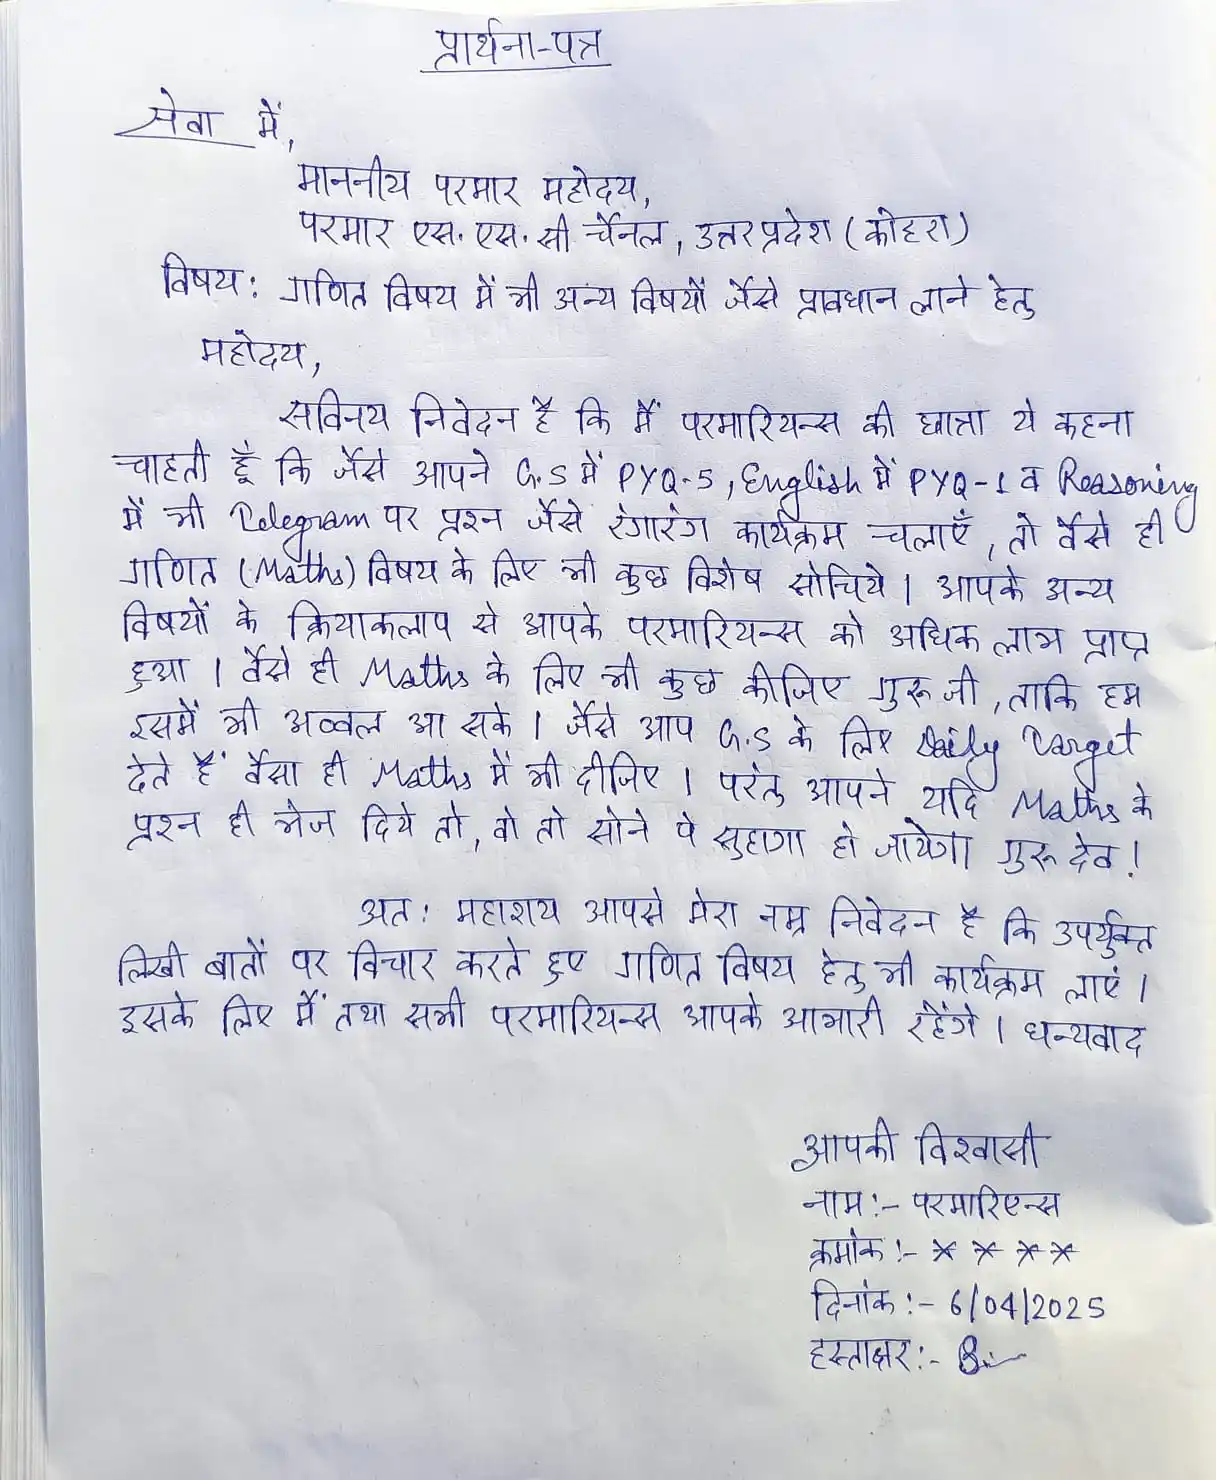 प्रार्थना-पत्र
सेवा में,
माननीय परमार महोदय,
परमार एस. एस. सी चैनल, उत्तर प्रदेश (कोहरा)
विषय: गणित विषय में भी अन्य विषयों जैसे प्रावधान लाने हेतु
महोदय,
सविनय निवेदन है कि मैं परमारियन्स की छात्रा ये कहना
चाहती हूँ कि जैसे आपने G.S में PYQ-5, English में PYQ-1 व Reasoning
में भी Telegram पर प्रश्न जैसे रंगारंग कार्यक्रम चलाएँ, तो वैसे ही
गणित (Maths) विषय के लिए भी कुछ विशेष सोचिये। आपके अन्य
विषयों के क्रियाकलाप से आपके परमारियन्स को अधिक लाभ प्राप्त
हुआ। वैसे ही Maths के लिए भी कुछ कीजिए गुरू जी, ताकि हम
इसमें भी अव्वल आ सके। जैसे आप G.S के लिए Daily Target
देते हैं वैसा ही Maths में भी दीजिए। परंतु आपने यदि Maths के
प्रश्न ही भेज दिये तो, वो तो सोने पे सुहागा हो जायेगा गुरू देव!
अत: महाशय आपसे मेरा नम्र निवेदन है कि उपर्युक्त
लिखी बातों पर विचार करते हुए गणित विषय हेतु भी कार्यक्रम लाएं।
इसके लिए मैं तथा सभी परमारियन्स आपके आभारी रहेंगे। धन्यवाद
आपकी विश्वासी
नाम:- परमारिएन्स
क्रमांक:- * * * *
दिनांक:- 6/04/2025
हस्ताक्षर:-